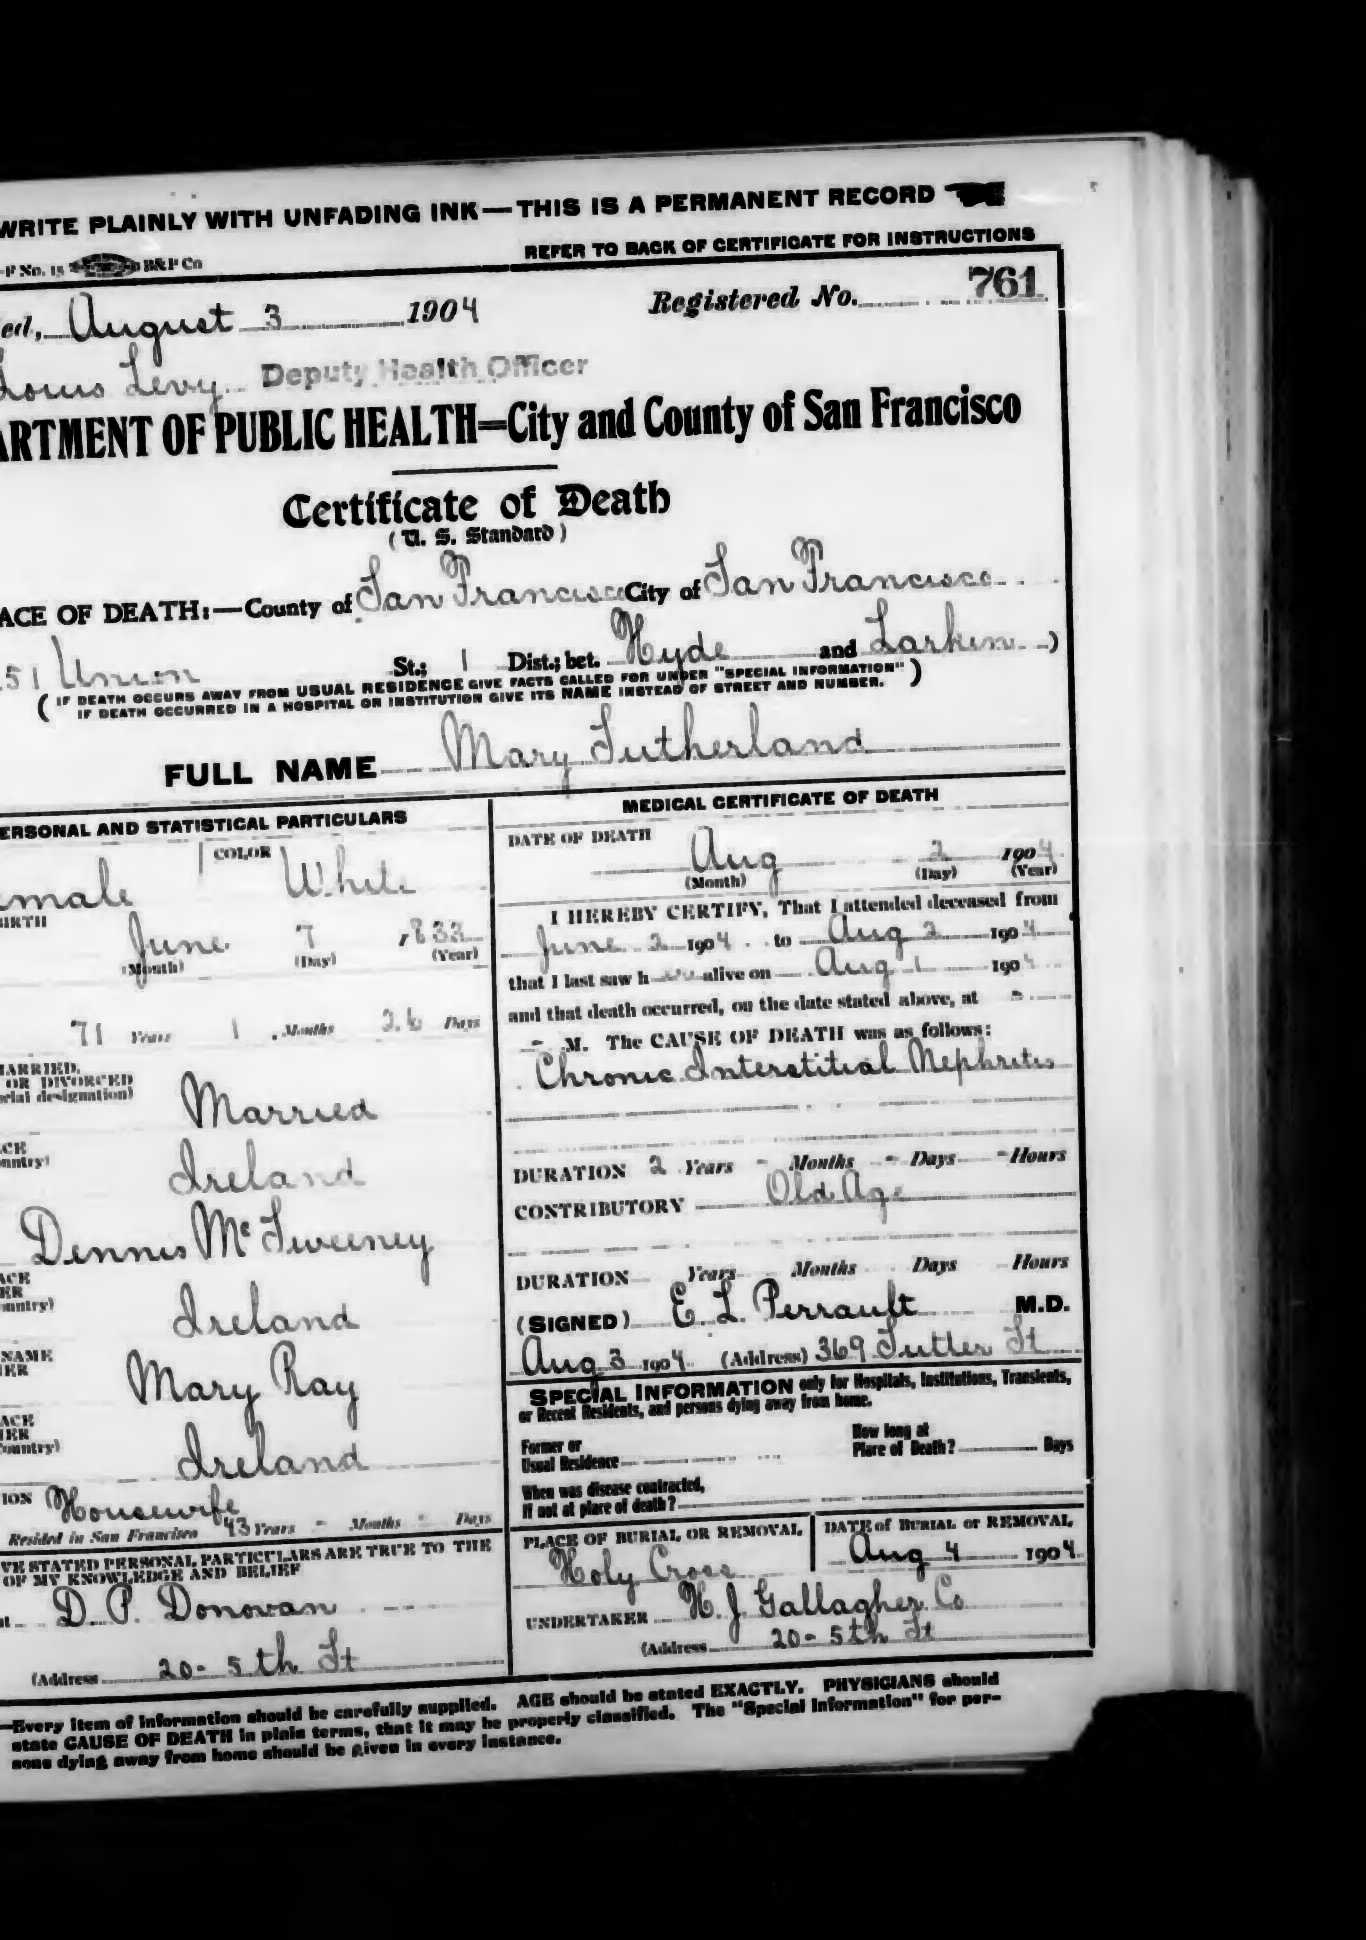 WRITE PLAINLY WITH UNFADING INK—THIS IS A PERMANENT RECORD
REFER TO BACK OF CERTIFICATE FOR INSTRUCTIONS
-F No. 15 B&P Co
ed, August 3 1904 Registered No. 761
Louis Levy Deputy Health Officer
ARTMENT OF PUBLIC HEALTH—City and County of San Francisco
Certificate of Death
(U. S. Standard)
ACE OF DEATH:—County of San Francisco City of San Francisco
51 Union St.; 1 Dist.; bet. Hyde and Larkin )
( IF DEATH OCCURS AWAY FROM USUAL RESIDENCE GIVE FACTS CALLED FOR UNDER "SPECIAL INFORMATION" )
IF DEATH OCCURRED IN A HOSPITAL OR INSTITUTION GIVE ITS NAME INSTEAD OF STREET AND NUMBER.
FULL NAME Mary Sutherland
ERSONAL AND STATISTICAL PARTICULARS
emale COLOR White
BIRTH
June 7 1833
(Month) (Day) (Year)
71 Years 1 Months 26 Days
MARRIED,
OR DIVORCED
cial designation)
Married
CE
ountry)
Ireland
Dennis McSweeney
ACE
ER
ountry)
Ireland
NAME
HER
Mary Ray
ACE
HER
Country)
Ireland
ION Housewife
Resided in San Francisco 43 Years - Months - Days
VE STATED PERSONAL PARTICULARS ARE TRUE TO THE
OF MY KNOWLEDGE AND BELIEF
nt D. P. Donovan
(Address 20 - 5th St
MEDICAL CERTIFICATE OF DEATH
DATE OF DEATH
Aug 2 1904
(Month) (Day) (Year)
I HEREBY CERTIFY, That I attended deceased from
June 2 1904 to Aug 2 1904
that I last saw her alive on Aug 1 1904
and that death occurred, on the date stated above, at -
- M. The CAUSE OF DEATH was as follows:
Chronic Interstitial Nephritis
DURATION 2 Years - Months - Days - Hours
CONTRIBUTORY Old Age
DURATION Years Months Days Hours
(SIGNED) E. L. Perrault M.D.
Aug 3 1904 (Address) 369 Sutter St
SPECIAL INFORMATION only for Hospitals, Institutions, Transients,
or Recent Residents, and persons dying away from home.
Former or
Usual Residence
How long at
Place of Death? Days
When was disease contracted,
If not at place of death?
PLACE OF BURIAL OR REMOVAL
Holy Cross
DATE of BURIAL or REMOVAL
Aug 4 1904
UNDERTAKER H. J. Gallagher Co
(Address 20 - 5th St
—Every item of information should be carefully supplied. AGE should be stated EXACTLY. PHYSICIANS should
state CAUSE OF DEATH in plain terms, that it may be properly classified. The "Special Information" for per-
sons dying away from home should be given in every instance.